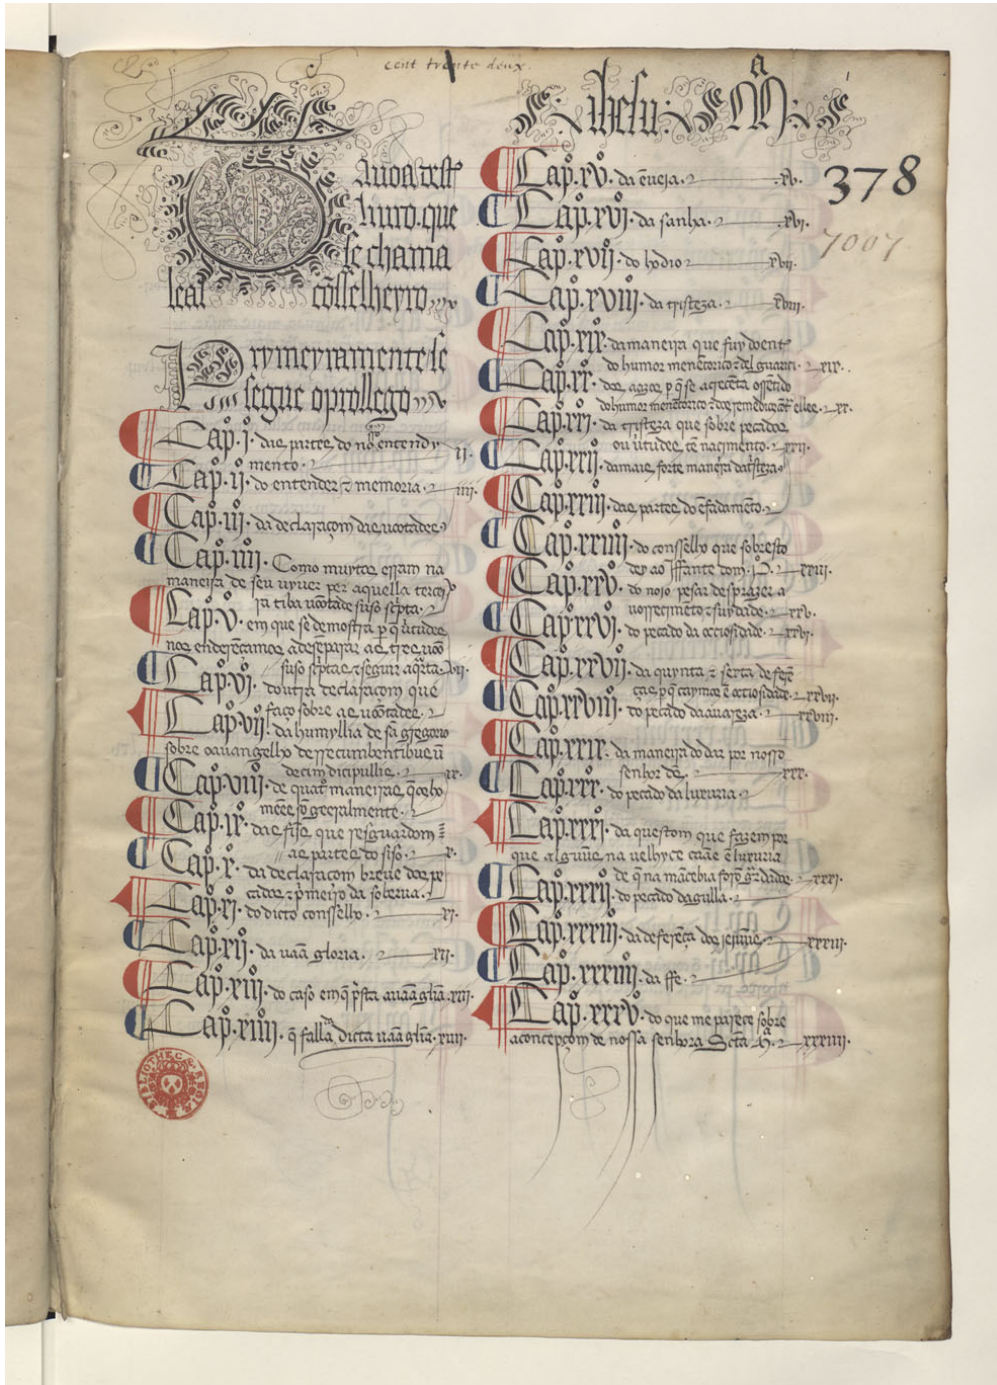 cent trente deux.
A
tauoa deste
liuro. que
se chama
leal cõsselheyro
Prymeyramente se
segue o prollego
Capº. j. das partes do nosso entendy
mento. ii.
Capº. ij. do entender ⁊ memoria. iiii.
Capº. iij. da declaraçom das uõtades
Capº. iiij. Como muytos erram na
maneira de seu uyuer per aquella terceyra
tiba uõtade suso scpta.
Capº. v. em que se demostra p q̃ uirtudes
nos enderençamos a desẽparar as tres uõo
suso scptas ⁊ seguir a qrta. vii.
Capº. vj. doutra declaraçom que
faço sobre as uõtades.
Capº. vij. da humyllia de sã gregorio
sobre o auangelho de recumbentibus ũ
decim dicipullis. ix.
Capº. viij. de quatº maneiras, q̃ corbo
mẽes som geeralmente.
Capº. ix. das fijs, que resguardom
as partes do siso. x.
Capº. x. da declaraçom breue dos pe
cados ⁊ p̃meiro da soberua.
Capº. xj. do dicto conssello. xi.
Capº. xij. da uãa gloria. xii.
Capº. xiij. do caso em q̃ p̃sta auãa gl̃ia. xiii.
Capº. xiiij. q̃ falla da dicta uãa gl̃ia. xiiii.
ihesu
M
378
7007
Capº. xv. da ẽueja. xv.
Capº. xvj. da sanha. xvi.
Capº. xvij. do hodio xvii.
Capº. xviij. da tristeza. xviii.
Capº. xix. da maneira que fuy doente
do humor menencorico ⁊ del guari. xix.
Capº. xx. dos azos, p q̃ se acrecẽta o sentido
do humor menẽcorico ⁊ dos remedios cõtra elles. xx.
Capº. xxj. da tristeza que sobre pecados
ou uirtudes tẽ nacimento. xxi.
Capº. xxij. da mais forte maneira da tristeza
Capº. xxiij. das partes do ẽfadamento.
Capº. xxiiij. do conssello que sobresto
dey ao Iffante dom. P. xxiiii.
Capº. xxv. do nojo pesar desprazer a
uorrecimẽto ⁊ suydade. xxv.
Capº. xxvj. do pecado da occiosidade. xxvi.
Capº. xxvij. da quynta ⁊ sexta defere
ças, p q̃ caymos ẽ occiosidade. xxvii.
Capº. xxviij. do pecado da auareza. xxviii.
Capº. xxix. da maneira do dar por nosso
senhor ds. xxx.
Capº. xxx. do pecado da luxuria
Capº. xxxj. da questom que fazem por
que alguũs na uelhyce caãe ẽ luxuria
de q̃ na mãcebia forõ g̃rdados. xxxi.
Capº. xxxij. do pecado da gulla.
Capº. xxxiij. da deferẽça dos jejuũs xxxiii.
Capº. xxxiiij. da ffe.
Capº. xxxv. do que me parece sobre
a concepçom de nossa senhora Scta Mª. xxxiiii.
BIBLIOTHECÆ REGIÆ